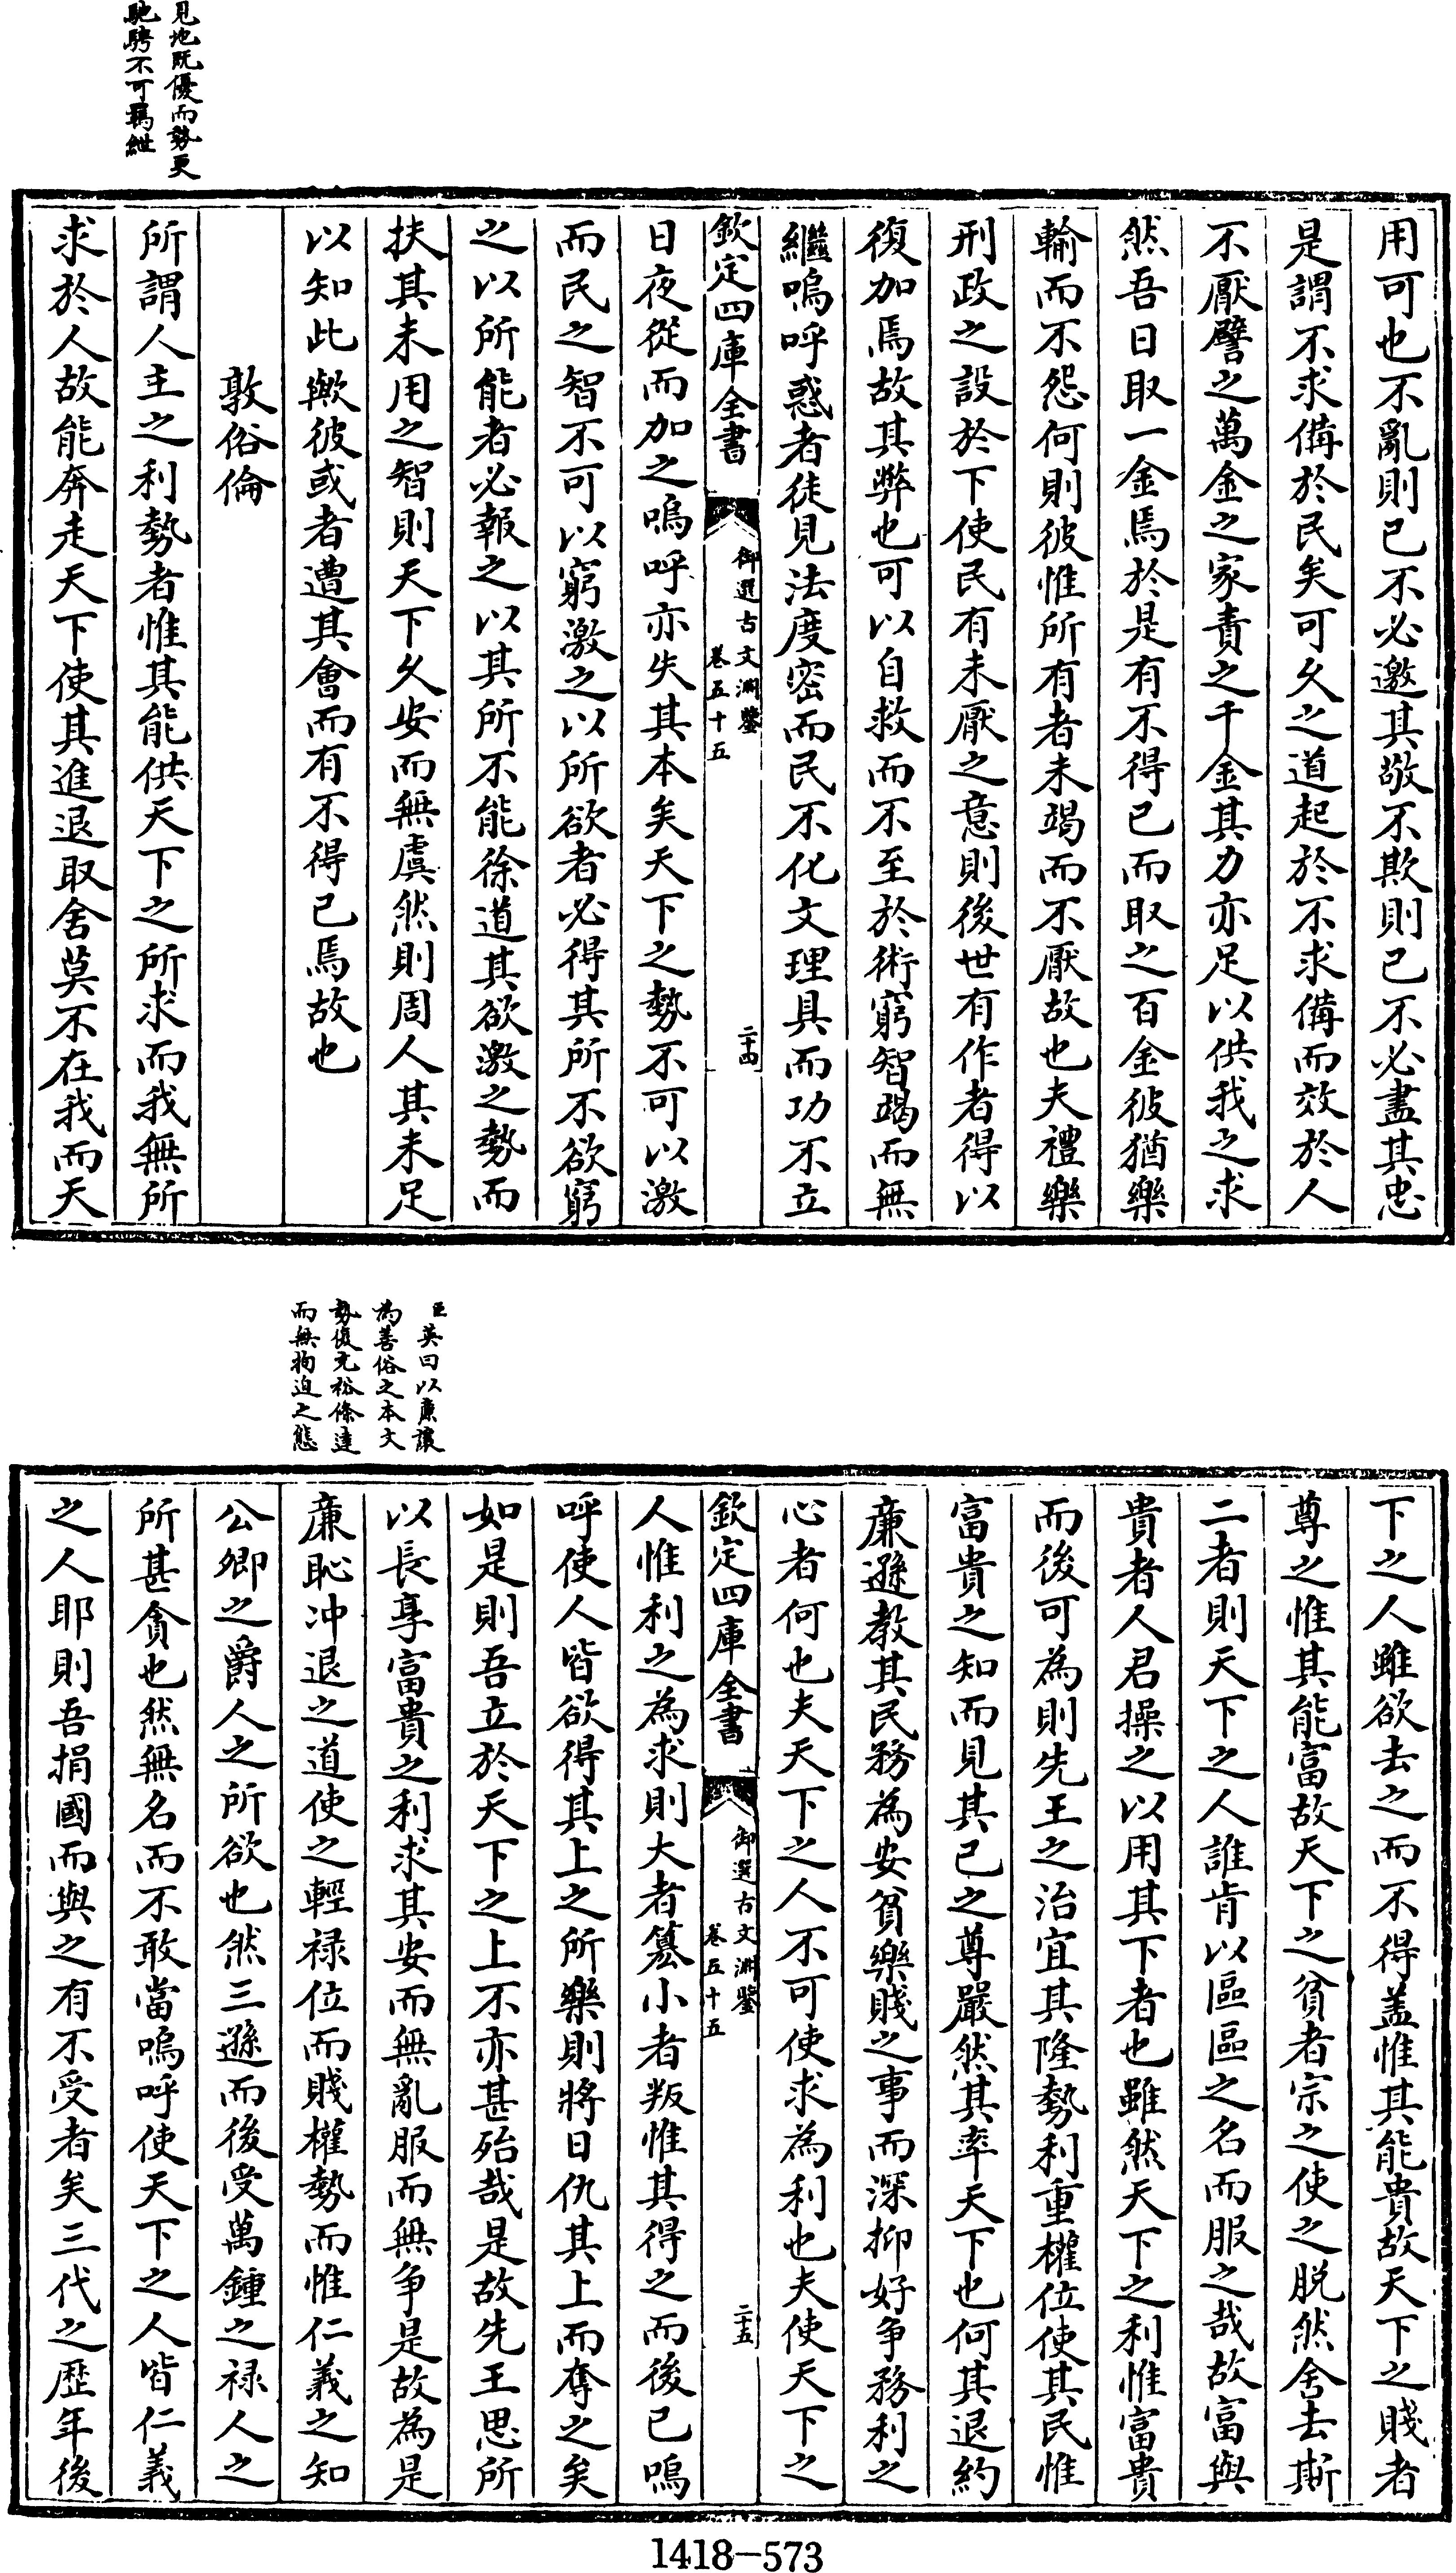 見地既優而勢更
馳騁不可羈紲
用可也不亂則已不必邀其敬不欺則已不必盡其忠
是謂不求備於民矣可久之道起於不求備而效於人
不厭譬之萬金之家責之千金其力亦足以供我之求
然吾日取一金焉於是有不得已而取之百金彼猶樂
輸而不怨何則彼惟所有者未竭而不厭故也夫禮樂
刑政之設於下使民有未厭之意則後世有作者得以
復加焉故其弊也可以自救而不至於術窮智竭而無
繼嗚呼惑者徒見法度密而民不化文理具而功不立
欽定四庫全書
御選古文淵鑒
卷五十五
二十四
日夜從而加之嗚呼亦失其本矣天下之勢不可以激
而民之智不可以窮激之以所欲者必得其所不欲窮
之以所能者必報之以其所不能徐道其欲激之勢而
扶其未用之智則天下久安而無虞然則周人其未足
以知此歟彼或者遭其會而有不得已焉故也
敦俗倫
所謂人主之利勢者惟其能供天下之所求而我無所
求於人故能奔走天下使其進退取舍莫不在我而天
臣英曰以廉讓
為善俗之本文
勢復充裕條達
而無拘迫之態
下之人雖欲去之而不得蓋惟其能貴故天下之賤者
尊之惟其能富故天下之貧者宗之使之脱然舍去斯
二者則天下之人誰肯以區區之名而服之哉故富與
貴者人君操之以用其下者也雖然天下之利惟富貴
而後可為則先王之治宜其隆勢利重權位使其民惟
富貴之知而見其已之尊嚴然其率天下也何其退約
廉遜教其民務為安貧樂賤之事而深抑好争務利之
心者何也夫天下之人不可使求為利也夫使天下之
欽定四庫全書
御選古文淵鑒
卷五十五
二十五
人惟利之為求則大者簒小者叛惟其得之而後已嗚
呼使人皆欲得其上之所樂則將日仇其上而奪之矣
如是則吾立於天下之上不亦甚殆哉是故先王思所
以長享富貴之利求其安而無亂服而無争是故為是
廉恥冲退之道使之輕禄位而賤權勢而惟仁義之知
公卿之爵人之所欲也然三遜而後受萬鍾之禄人之
所甚貪也然無名而不敢當嗚呼使天下之人皆仁義
之人耶則吾捐國而與之有不受者矣三代之歷年後
1418-573